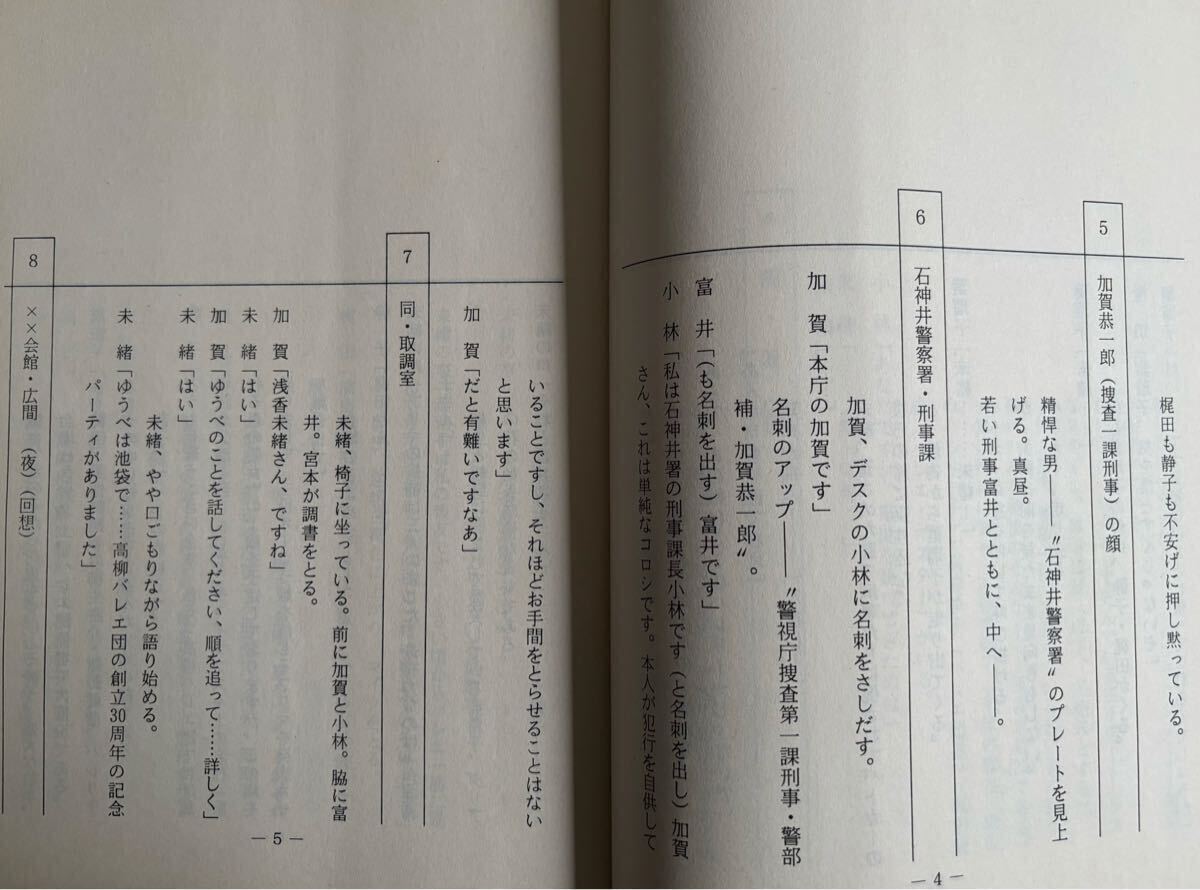 梶田も静子も不安げに押し黙っている。
5 加賀恭一郎（捜査一課刑事）の顔
精悍な男――〝石神井警察署〟のプレートを見上
げる。真昼。
若い刑事富井とともに、中へ――。
6 石神井警察署・刑事課
加賀、デスクの小林に名刺をさしだす。
加　賀「本庁の加賀です」
名刺のアップ――〝警視庁捜査第一課刑事・警部
補・加賀恭一郎〟。
富　井「（も名刺を出す）富井です」
小　林「私は石神井署の刑事課長小林です（と名刺を出し）加賀
さん、これは単純なコロシです。本人が犯行を自供して
― 4 ―
いることですし、それほどお手間をとらせることはない
と思います」
加　賀「だと有難いですなあ」
7 同・取調室
未緒、椅子に坐っている。前に加賀と小林。脇に富
井。宮本が調書をとる。
加　賀「浅香未緒さん、ですね」
未　緒「はい」
加　賀「ゆうべのことを話してください、順を追って……詳しく」
未　緒「はい」
未緒、やや口ごもりながら語り始める。
未　緒「ゆうべは池袋で……高柳バレエ団の創立30周年の記念
パーティがありました」
8 ××会館・広間（夜）（回想）
― 5 ―